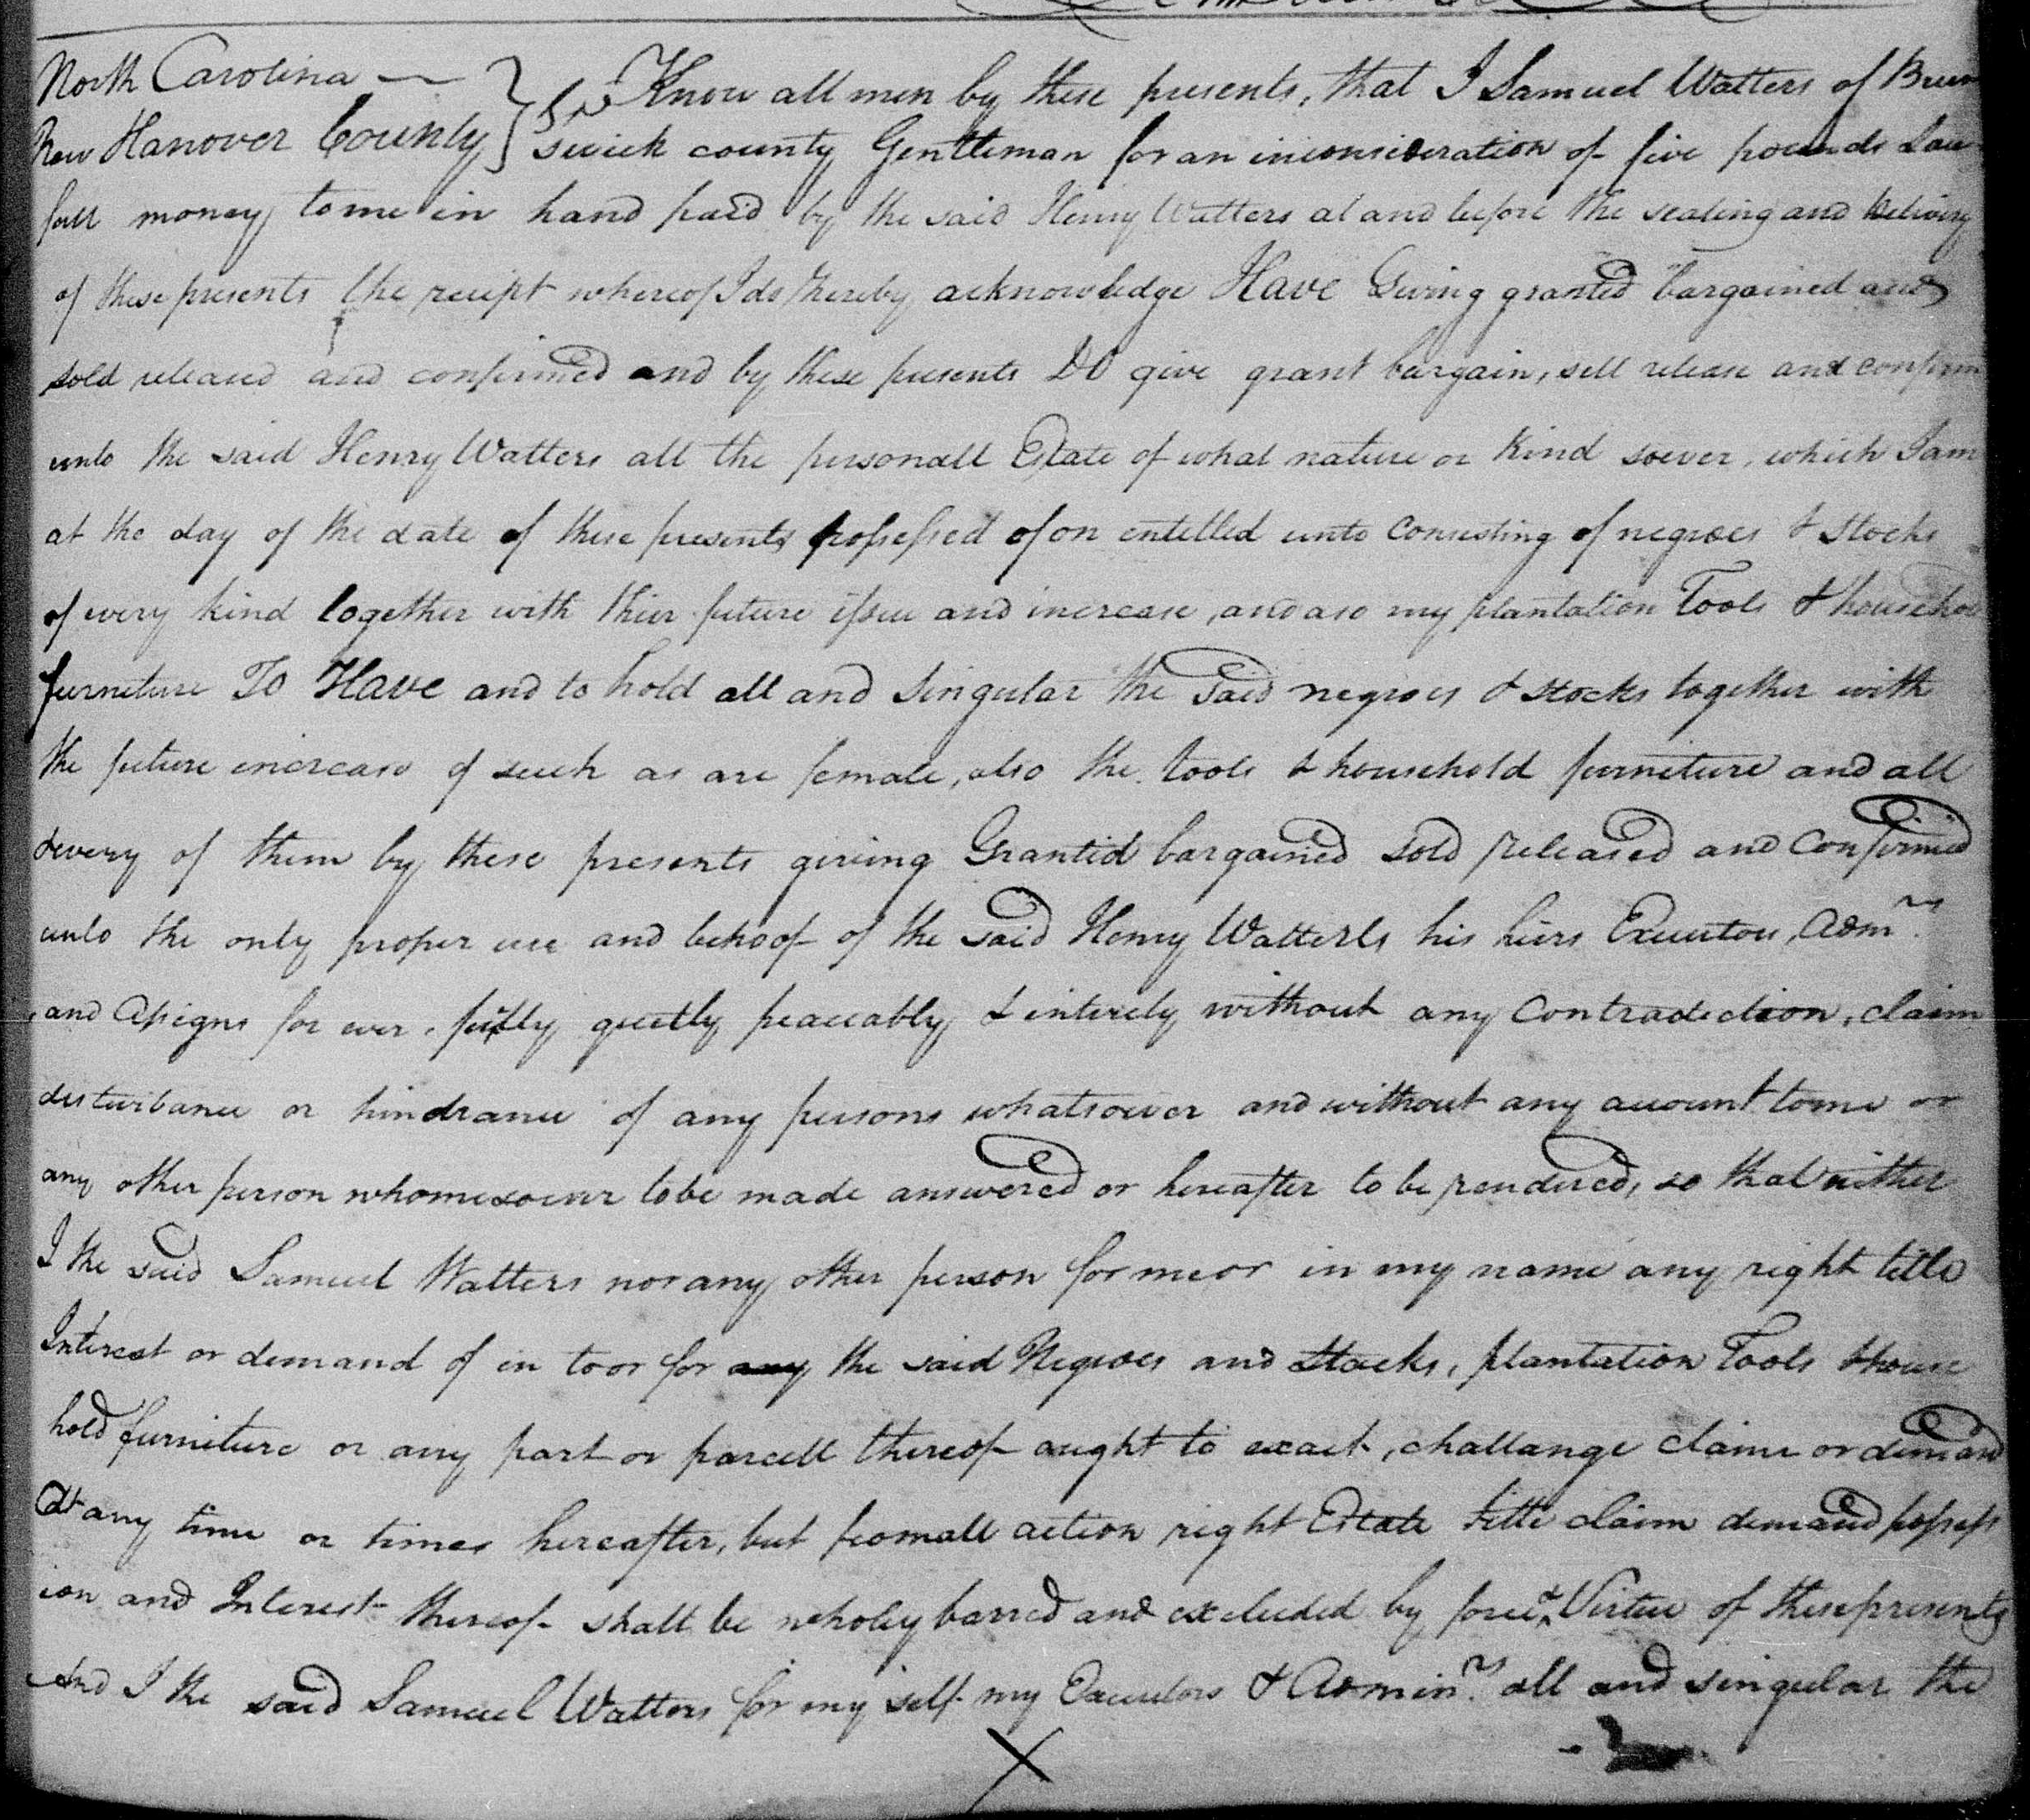 North Carolina Know all men by these presents, that I Samuel Watters of Brun
New Hanover County swick county Gentleman for an inconsideration of five pounds Law
full money to me in hand paid by the said Henry Watters at and before the sealing and delivery
of these presents the receipt whereof I do hereby acknowledge Have Giving granted bargained and
sold released and confirmed and by these presents DO give grant bargain, sell release and confirm
unto the said Henry Watters all the personall Estate of what nature or Kind soever, which I am
at the day of the date of these presents possessed of on entitled unto Consisting of negroes & stocks
of every kind together with thier future issue and increase, and aso my plantation Tools & household
furniture To Have and to hold all and Singular the said negroes & stocks together with
the future increase of such as are female, also the tools & household furniture and all
& every of them by these presents giving Granted bargained sold released and Confirmed
unto the only proper use and behoof of the said Henry Watters his hiers Executors, Admrs.
and Assigns for ever, fully quietly peaceably & intirely without any Contradiction, claim
disturbance or hindrance of any persons whatsoever and without any account to me or
any other person whomesoever to be made answered or hereafter to be rendered, so that nither
I the said Samuel Watters nor any other person for me or in my name any right title
Interest or demand of in to or for any the said Negroes and Stocks, plantation Tools & house
hold furniture or any part or parcell thereof aught to exact, challange claim or demand
At any time or times hereafter, but from all action right Estate title claim demand possess
ion and Interest thereof shall be wholey barred and excluded by force & Virtue of these presents
And I the said Samuel Watters for my self my Executors & Adminrs. all and singular the